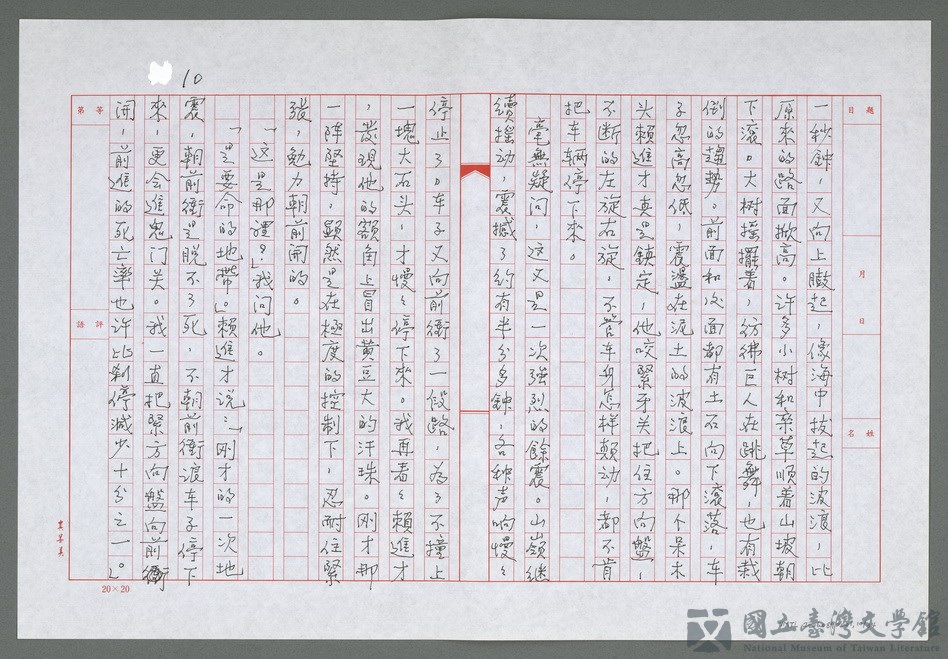 10
題目
月 日
姓名
一秒鈡，又向上臌起，像海中拔起的波浪，比
原來的路面掀高。许多小树和杂草順着山坡朝
下滾。大树摇擺着，彷彿巨人在跳舞，也有栽
倒的趨勢。前面和后面都有土石向下滾落，车
子忽高忽低，震盪在泥土的波浪上。那个呆木
头賴進才真是鎮定，他咬緊牙关把住方向盤，
不断的左旋右旋，不管车身怎样颠动，都不肯
把车辆停下來。
毫無疑问，这又是一次強烈的餘震。山嶺继
續摇动，震撼了約有半分多鈡，各种声响慢々
停止了。车子又向前衝了一段路，為了不撞上
一塊大石头，才慢々停下來。我再看々賴進才
，发現他的額角上冒出黄豆大的汗珠。刚才那
一阵堅持，顕然是在極度的控制下，忍耐住緊
張，勉力朝前开的。
「这是那裡？」我问他。
「是要命的地帶。」賴進才说：「刚才的一次地
震，朝前衝是脱不了死，不朝前衝讓车子停下
來，更会進鬼门关。我一直把緊方向盤向前衝
開，前進的死亡率也许比刹停減少十分之一。」
第 等
評語
20×20
國立臺灣文學館
National Museum of Taiwan Literature